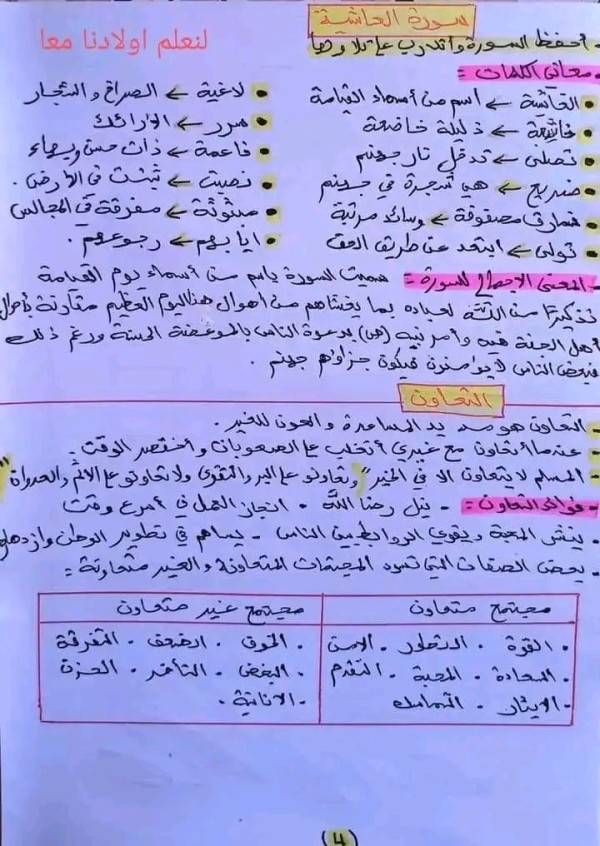 سورة الغاشية
لنعلم اولادنا معا
- أحفظ السورة وأتدرب على تلاوتها
- معاني الكلمات :
• الغاشية ← اسم من أسماء القيامة
• لاغية ← الصراخ والشجار
• خاشعة ← ذليلة خاضعة
• سرر ← الأرائك
• تصلى ← تدخل نار جهنم
• ناعمة ← ذات حسن وبهاء
• ضريع ← هي شجرة في جهنم
• نصبت ← ثبتت في الأرض .
• نمارق مصفوفة ← وسائد مرتبة
• مبثوثة ← مفرقة في المجالس
• تولى ← ابتعد عن طريق الحق
• ايابهم ← رجوعهم .
- المعنى الإجمالي للسورة : سميت السورة باسم من أسماء يوم القيامة
تذكيرا من الله لعباده بما يغشاهم من أهوال هذا اليوم العظيم مقارنة بأحوال
أهل الجنة فيه وأمر نبيه (ص) بدعوة الناس بالموعضة الحسنة ورغم ذلك
فبعض الناس لا يؤمنون فيكون جزاؤهم جهنم .
التعاون
- التعاون هو مد يد المساعدة والعون للغير .
- عندما أتعاون مع غيري أتغلب على الصعوبات وأختصر الوقت .
- المسلم لا يتعاون الا في الخير " وتعاونو على البر والتقوى ولا تعاونو على الاثم والعدوان "
- فوائد التعاون : - نيل رضا الله . انجاز العمل في أسرع وقت
- ينشر المحبة ويقوي الروابط بين الناس - يساهم في تطوير الوطن وازدهاره
- بعض الصفات التي تسود المجتمعات المتعاونة والغير متعاونة :
مجتمع متعاون
مجتمع غير متعاون
• القوة • التطور • الامن
• السعادة • المحبة • التقدم
• الايثار • التماسك
• الخوف • الضعف • التفرقة
• البغض • التأخر • الحزن
• الانانية .
(4)